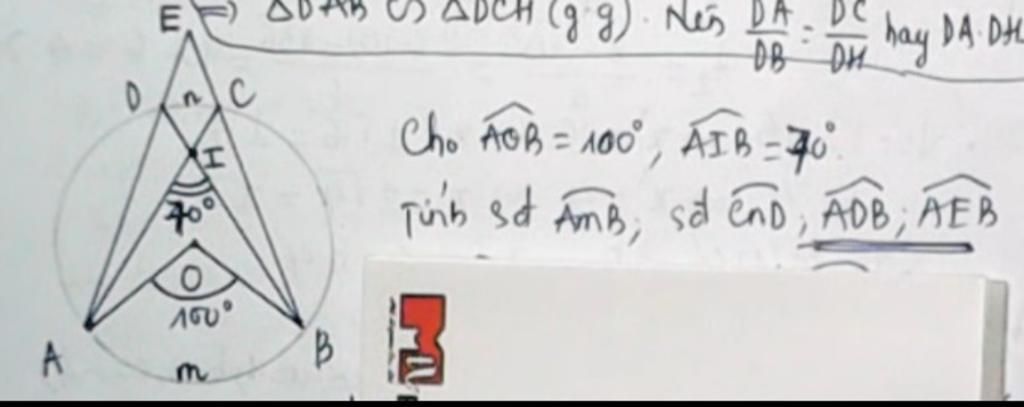 E ⇒ ΔDAB ∽ ΔDCH (g.g). Nên DA/DB = DC/DH hay DA.DH
D n C
I
70°
O
100°
A m B
Cho AOB = 100°, AIB = 70°.
Tính sđ AmB; sđ CnD; ADB; AEB